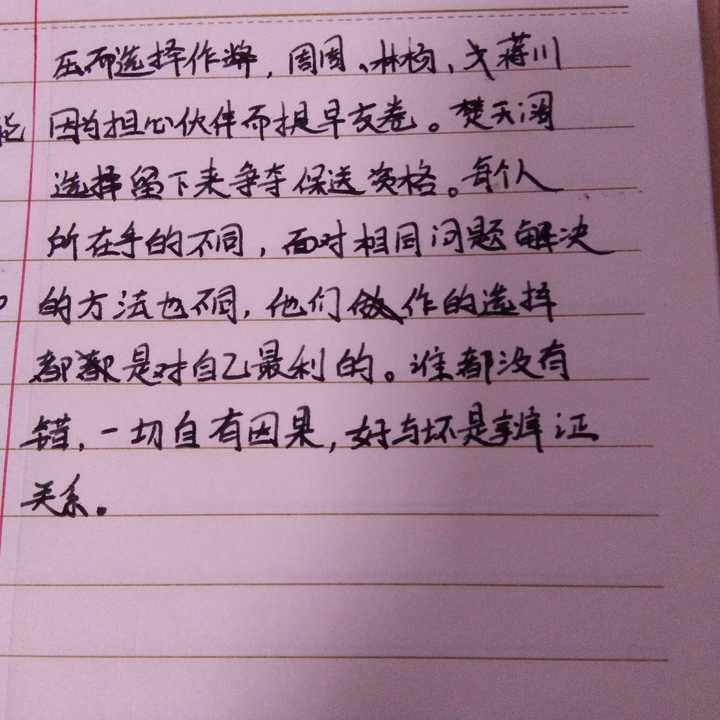 压而选择作弊，周周、林杨，戈蒋川
能 因为担心伙伴而提早交卷。楚天阔
选择留下来争夺保送资格。每个人
所在乎的不同，面对相同问题解决
的方法也不同，他们做作的选择
都都是对自己最利的。谁都没有
错，一切自有因果，好与坏是辨证
关系。